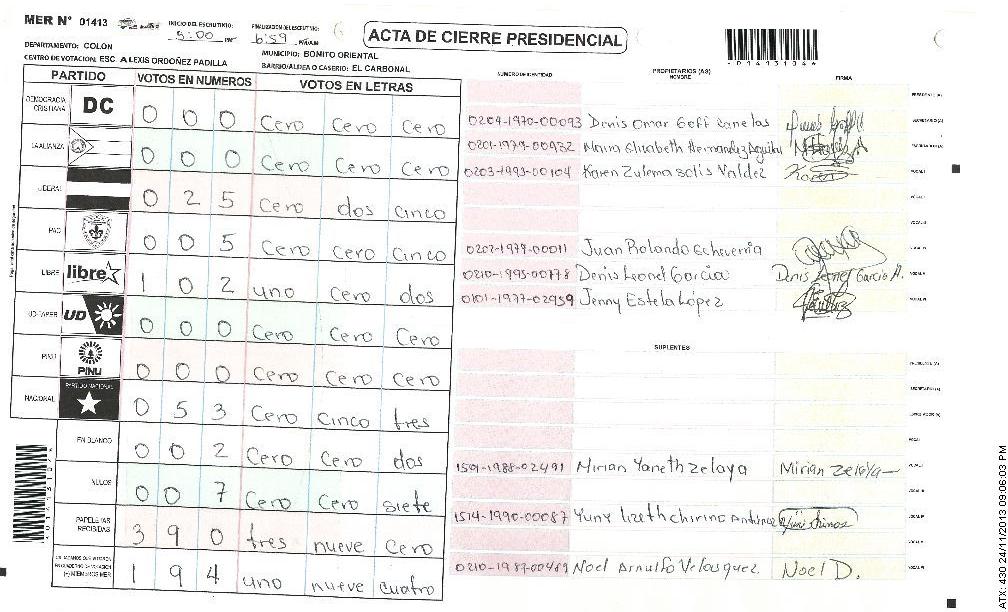 MER N° 01413
INICIO DEL ESCRUTINIO: 5:00 PM
FINALIZACION DEL ESCRUTINIO: 6:59 PM/AM
ACTA DE CIERRE PRESIDENCIAL
DEPARTAMENTO: COLÓN
MUNICIPIO: BONITO ORIENTAL
CENTRO DE VOTACION: ESC. ALEXIS ORDOÑEZ PADILLA
BARRIO/ALDEA O CASERIO: EL CARBONAL
PARTIDO VOTOS EN NUMEROS VOTOS EN LETRAS
DEMOCRACIA CRISTIANA DC 0 0 0 Cero Cero Cero
LA ALIANZA 0 0 0 Cero Cero Cero
LIBERAL 0 2 5 Cero dos cinco
PAC 0 0 5 Cero Cero Cinco
LIBRE libre 1 0 2 uno Cero dos
UD-FAPER UD 0 0 0 Cero Cero Cero
PINU PINU 0 0 0 Cero Cero Cero
NACIONAL PARTIDO NACIONAL 0 5 3 Cero Cinco tres
EN BLANCO 0 0 2 Cero Cero dos
NULOS 0 0 7 Cero Cero siete
PAPELETAS RECIBIDAS 3 9 0 tres nueve Cero
CIUDADANOS QUE VOTARON EN CUADERNO DE VOTACION (+) MIEMBROS MER 1 9 4 uno nueve cuatro
NUMERO DE IDENTIDAD PROPIETARIOS (AS) NOMBRE FIRMA
PRESIDENTE (A)
0204-1970-00093 Denis Omar Goff Canelas SECRETARIO (A)
0201-1979-00932 Maira Elizabeth Hernandez Aguilar ESCRUTADOR (A)
0203-1993-00104 Karen Zulema Solis Valdez VOCAL I
VOCAL II
VOCAL III
0202-1979-00011 Juan Rolando Echeverria VOCAL IV
0210-1995-00778 Denis Leonel Garcia Denis Leonel Garcia A. VOCAL V
0101-1977-02959 Jenny Estela López VOCAL VI
SUPLENTES
PRESIDENTE (A)
SECRETARIO (A)
ESCRUTADOR (A)
VOCAL I
1501-1988-02491 Mirian Yaneth zelaya Mirian zelaya VOCAL II
VOCAL III
1514-1990-00087 Yuny lizeth chirino VOCAL IV
VOCAL V
0210-1987-00489 Noel Arnulfo Velasquez Noel D. VOCAL VI
ATX: 430 24/11/2013 09:06:03 PM